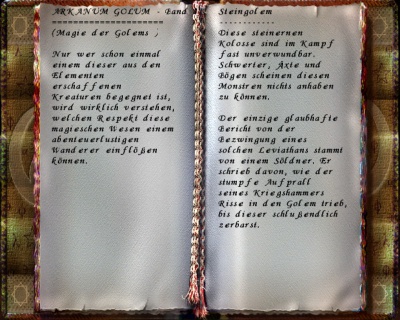 ARKANUM GOLUM - Band
====================
(Magie der Golems )
Nur wer schon einmal
einem dieser aus den
Elementen
erschaffenen
Kreaturen begegnet ist,
wird wirklich verstehen,
welchen Respekt diese
magieschen Wesen einem
abenteuerlustigen
Wanderer einflößen
können.
Steingolem
-----------
Diese steinernen
Kolosse sind im Kampf
fast unverwundbar.
Schwerter, Äxte und
Bögen scheinen diesen
Monstren nichts anhaben
zu können.
Der einzige glaubhafte
Bericht von der
Bezwingung eines
solchen Leviathans stammt
von einem Söldner. Er
schrieb davon, wie der
stumpfe Aufprall
seines Kriegshammers
Risse in den Golem trieb,
bis dieser schlußendlich
zerbarst.